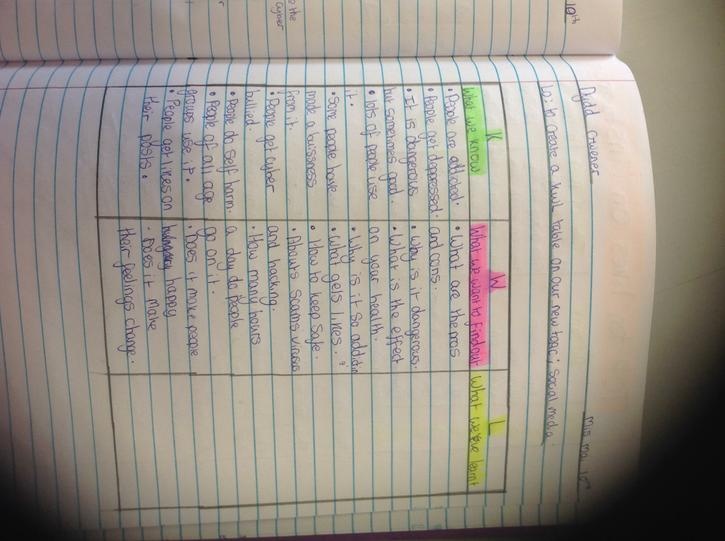 Dydd Gwener
Mis Mai 10th
Lo: to create a kwl table on our new topic: social media.
K
What we know
• People are addicted.
• People get depressed.
• It is dangerous
but sometimes good.
• lots of people use
it.
• Some people have
made a buissness
from it.
• People get cyber
bullied.
• People do self harm.
• People of all age
groups use it.
• People get likes on
their posts.
W
What we want to find out
• What are the pros
and cons.
• Why is it dangerous.
• What is the effect
on your health.
• Why is it so addictin
• What gets likes.
• How to keep safe.
• Abouts scams viruses
and hacking.
• How many hours
a day do people
go on it.
• Does it make people
happy
• Does it make
their feelings change.
L
What we've learnt
10th
the
cyber